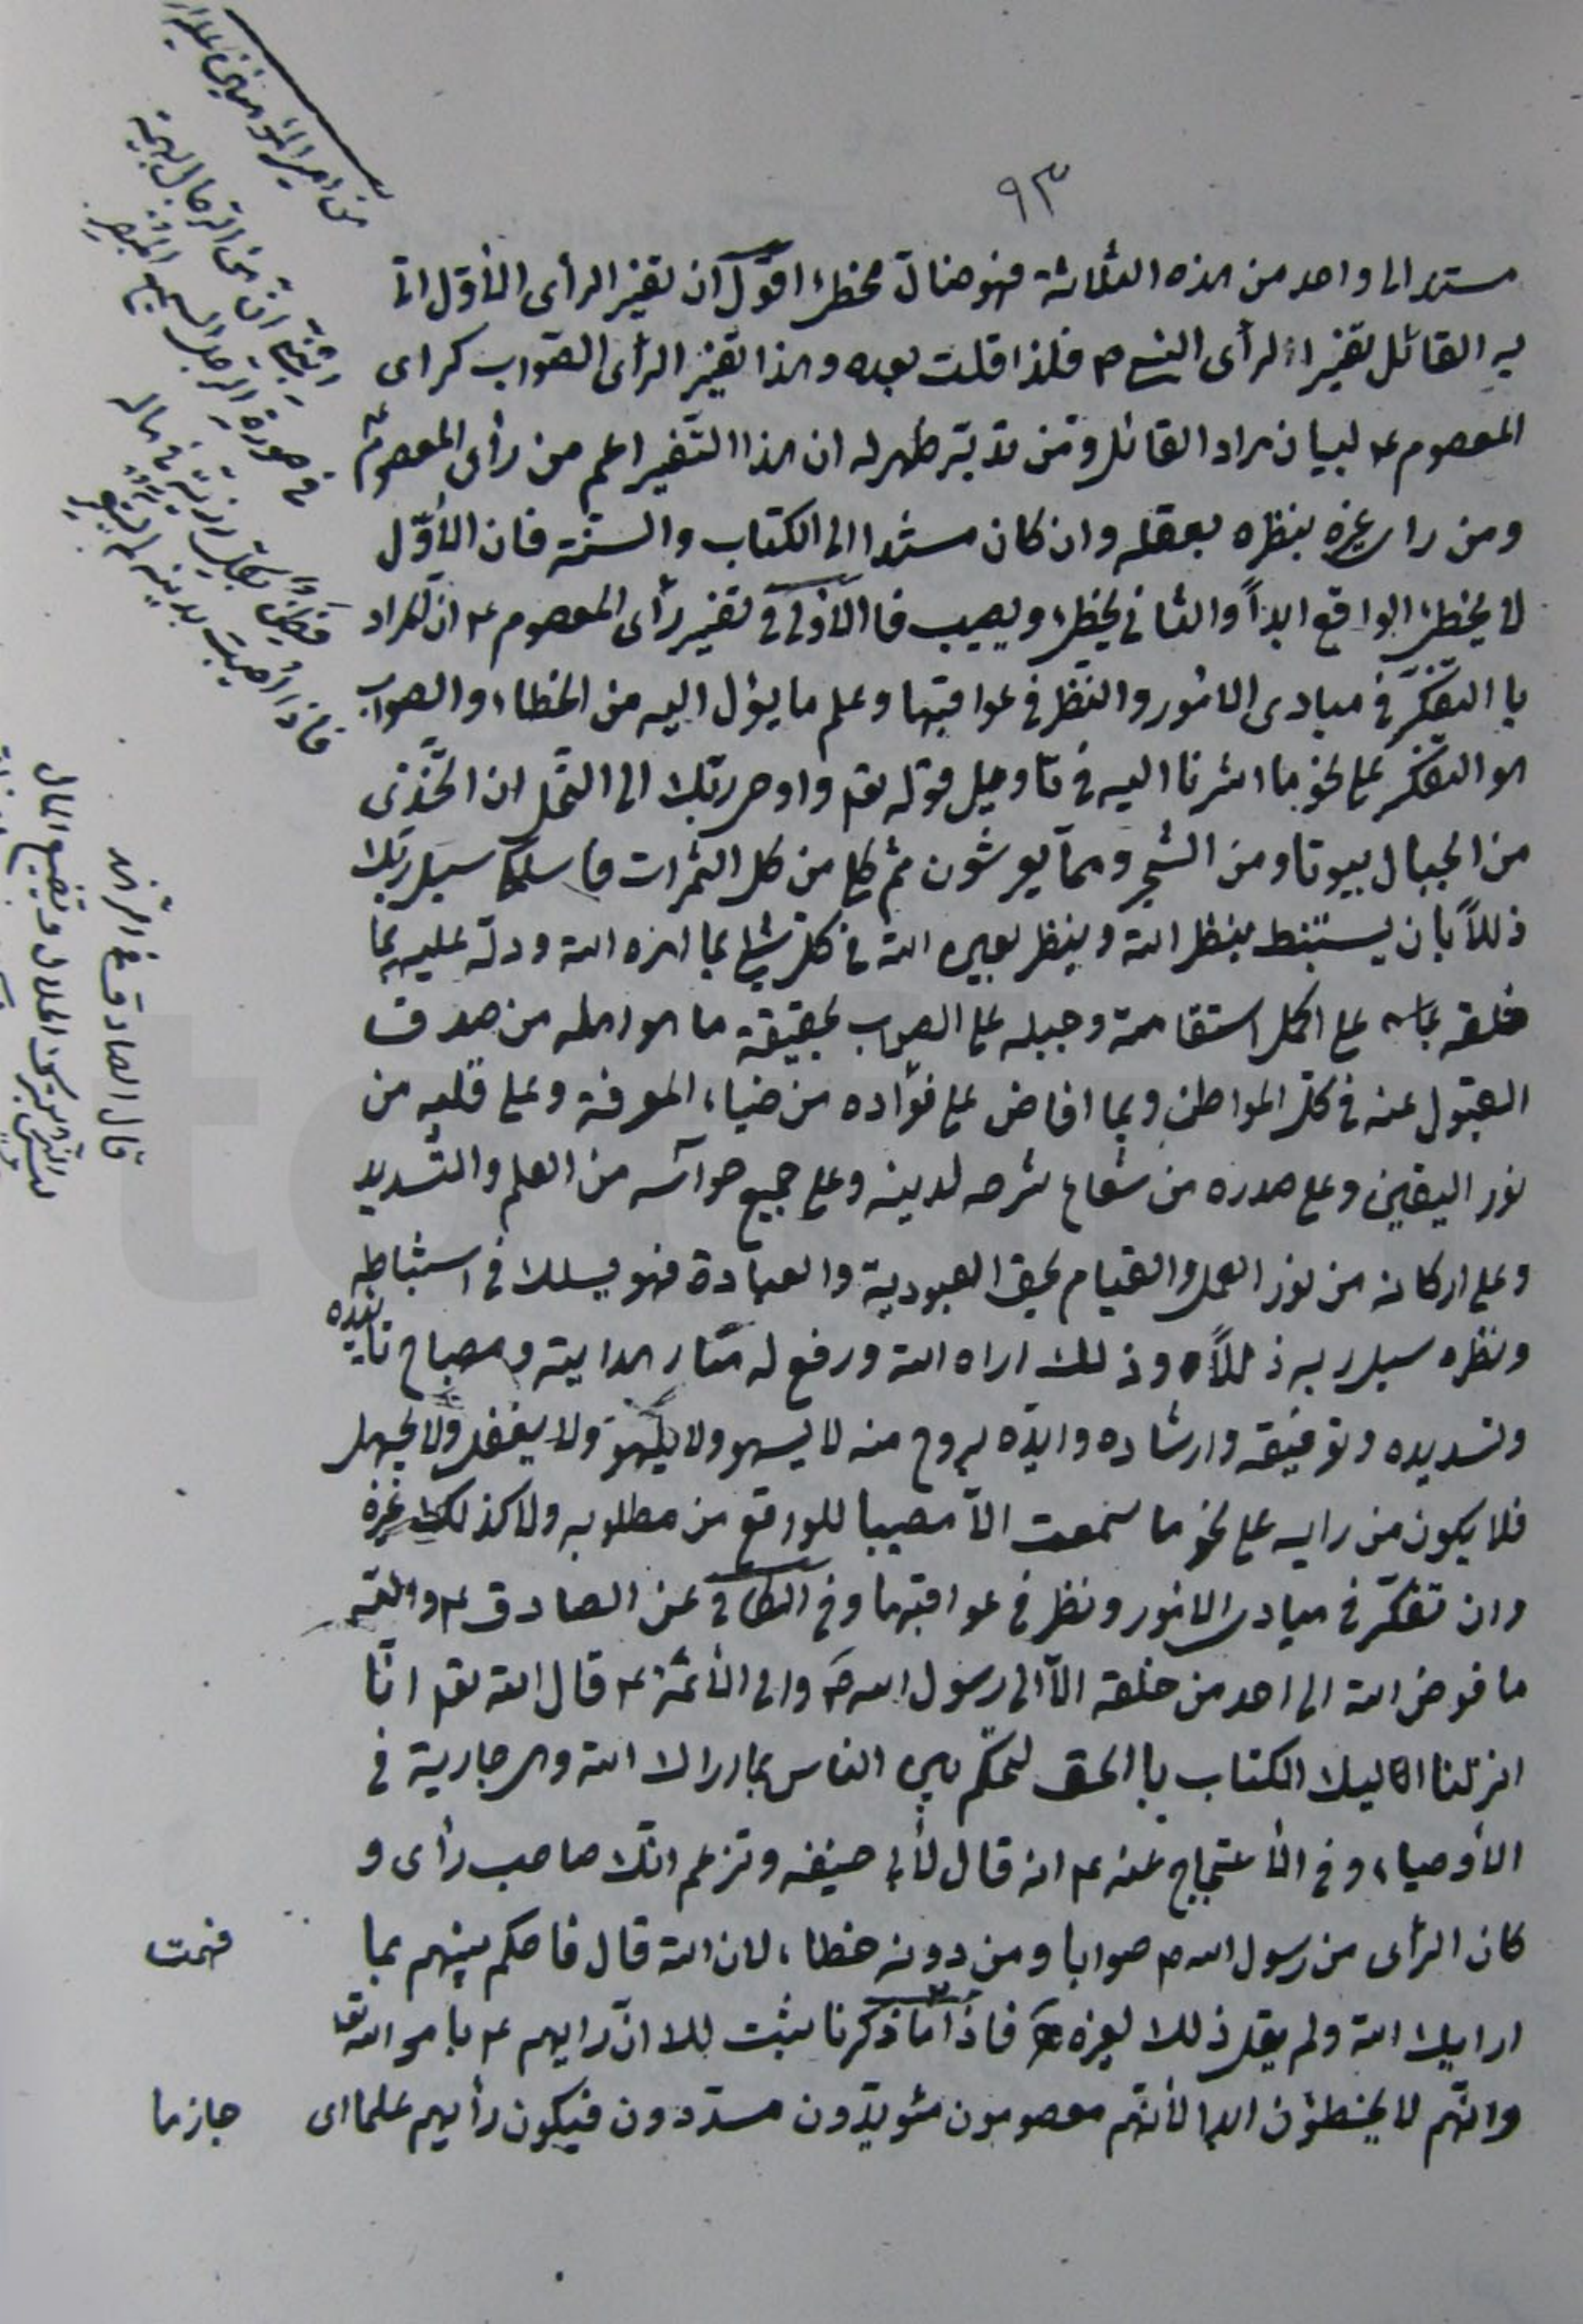 ٩٣
مستند الى واحد من هذه الثلاثة فهو ضال مخطئ اقول ان تفسير الرأى الأول اتى
به القائل تفسيرا لرأى النبي ص فلذا قلت بعده وهذا تفسير الرأى الصواب كراى
المعصوم ع لبيان مراد القائل ومن تدبر ظهر له ان هذا التفسير اعم من رأى المعصوم ع
ومن راى غيره بنظره بعقله وان كان مستندا الى الكتاب والسنة فان الأول
لا يخطئ الواقع ابداً والثانى يخطئ ويصيب فا الأولى فى تفسير رأى المعصوم ع ان المراد
با التفكر فى مبادى الامور والنظر فى عواقبها وعلم ما يؤل اليه من الخطاء والصواب
هو التفكر على نحو ما اشرنا اليه فى تاويل قوله تعم واوحى ربك الى النحل ان اتخذى
من الجبال بيوتا ومن الشجر ومما يعرشون ثم كلى من كل الثمرات فاسلكى سبل ربك
ذللاً بان يستنبط بنظر الله وينظر بعين الله فى كل شئ بما امره الله ودله عليه بما
خلقه على اكمل استقامة وجبله على الصواب بحقيقة ما هو اهله من صدق
القبول عنه فى كل المواطن وبما افاض على فؤاده من ضياء المعرفة وعلى قلبه من
نور اليقين وعلى صدره من شعاع شرحه لدينه وعلى جميع حواسه من العلم والتسديد
وعلى اركانه من نور العمل والقيام بحق العبودية والعبادة فهو يسلك فى استنباطه
ونظره سبل ربه ذللاً وذلك اراه الله ورفع له منار الهداية ومصباح تأييده
وتسديده وتوفيقه وارشاده وايده بروح منه لا يسهو ولا يلهو ولا يغفل ولا يجهل
فلا يكون من رايه على نحو ما سمعت الا مصيبا للواقع من مطلوبه ولا كذلك غيره
وان تفكر فى مبادى الامور ونظر فى عواقبها وفى الكافى عن الصادق ع والله
ما فوض الله الى احد من خلقه الا الى رسول الله ص والى الأئمة ع قال الله تعم انا
انزلنا اليك الكتاب با الحق لتحكم بين الناس بما اراك الله وهى جارية فى
الأوصياء وفى الأحتجاج عنه ع انه قال لأبى حنيفه وتزعم انك صاحب رأى و
كان الرأى من رسول الله ص صوابا ومن دونه خطاء لان الله قال فاحكم بينهم بما
اريك الله ولم يقل ذلك لغيره فاذا ما ذكرنا ثبت لك ان رايهم ع بامر الله تعم
وانهم لا يخطئون ابدا لأنهم معصومون مؤيدون مسددون فيكون رأيهم علما اى
فهمت
جازما
من امير المؤمنين عليه
فى صورة الرجل السميع البصير
قال الصادق ع